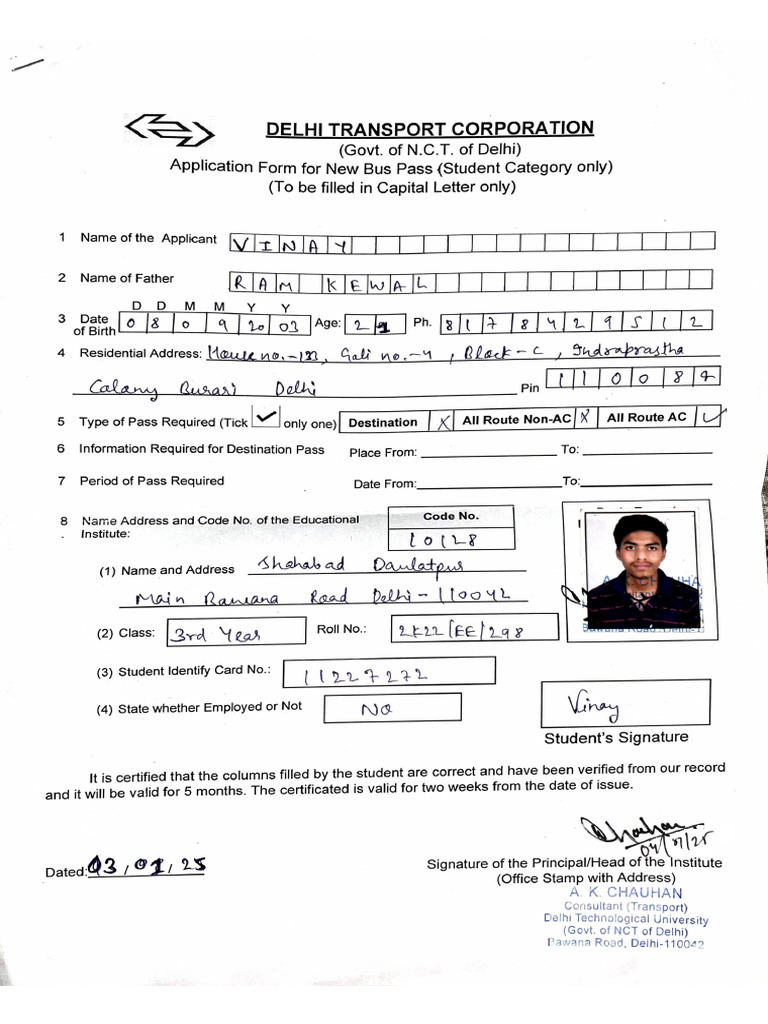 DELHI TRANSPORT CORPORATION
(Govt. of N.C.T. of Delhi)
Application Form for New Bus Pass (Student Category only)
(To be filled in Capital Letter only)
1 Name of the Applicant VINAY
2 Name of Father RAM KEWAL
D D M M Y Y
3 Date of Birth 08 09 2003 Age: 21 Ph. 8178429512
4 Residential Address: House no.-133, Gali no.-4, Block-C, Indraprastha
Colany Burari Delhi Pin 110084
5 Type of Pass Required (Tick ✓ only one) Destination X All Route Non-AC X All Route AC ✓
6 Information Required for Destination Pass Place From: To:
7 Period of Pass Required Date From: To:
8 Name Address and Code No. of the Educational Institute: Code No.
10128
(1) Name and Address Shahabad Daulatpur
Main Bawana Road Delhi-110042
(2) Class: 3rd Year Roll No.: 2K22/EE/298
(3) Student Identify Card No.: 11227272
(4) State whether Employed or Not No
Vinay
Student's Signature
It is certified that the columns filled by the student are correct and have been verified from our record
and it will be valid for 5 months. The certificated is valid for two weeks from the date of issue.
Dated: 03/01/25
Signature of the Principal/Head of the Institute
(Office Stamp with Address)
A. K. CHAUHAN
Consultant (Transport)
Delhi Technological University
(Govt. of NCT of Delhi)
Bawana Road, Delhi-110042